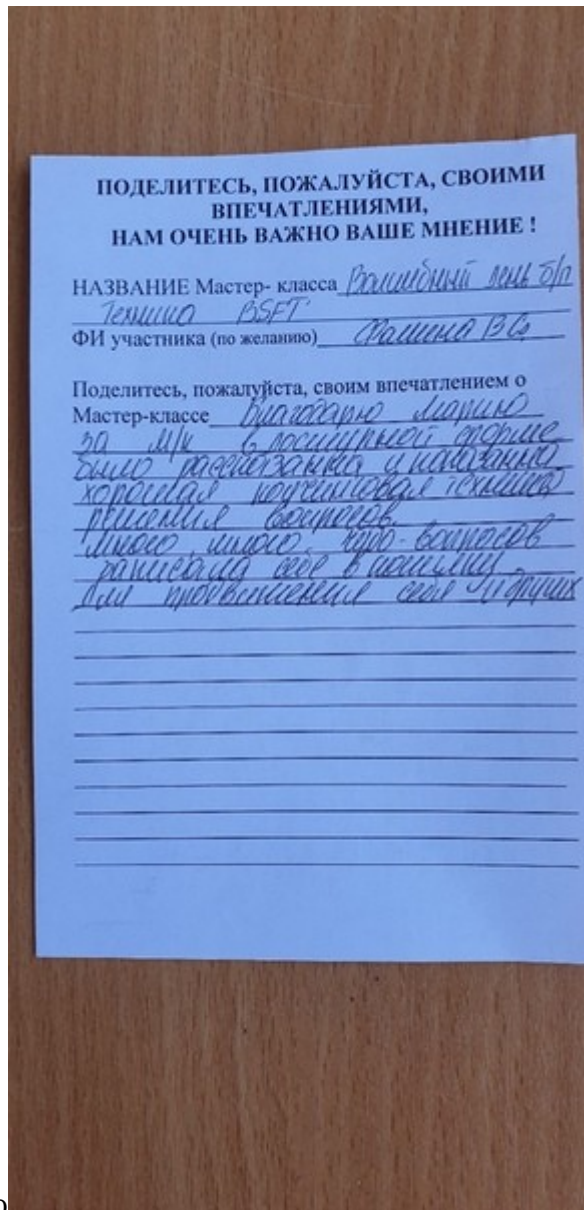 ПОДЕЛИТЕСЬ, ПОЖАЛУЙСТА, СВОИМИ
ВПЕЧАТЛЕНИЯМИ,
НАМ ОЧЕНЬ ВАЖНО ВАШЕ МНЕНИЕ !
НАЗВАНИЕ Мастер- класса Волшебный день б/п
Техника BSFT
ФИ участника (по желанию)
Поделитесь, пожалуйста, своим впечатлением о
Мастер-классе Благодарю Марину
за м/к в доступной форме
было рассказанна и показанна
хорошая коучинговая техника
решения вопросов.
много, много, чудо-вопросов
записала себе в копилку
для проявления себя и других